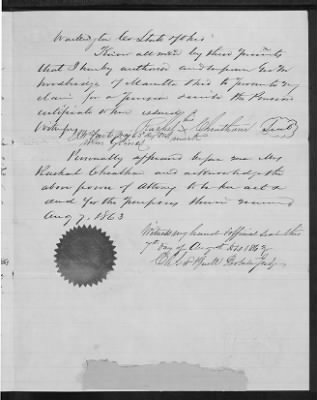 Washington Co State of Ohio
Know all men by these Presents
that I hereby authorise and empower Geo M
Woodbridge of Marietta Ohio to prosecute my
claim for a Pension receive the Pension
certificate when issued
Rachel Cheatham Seal
Personally appeared before me Mrs
Rachel Cheatham and acknowledged the
above power of Attorny to be her act &
and for the purposes therein
Aug 7, 1863
Witness my hand & official seal this
7th day of August AD 1863
Probate Judge